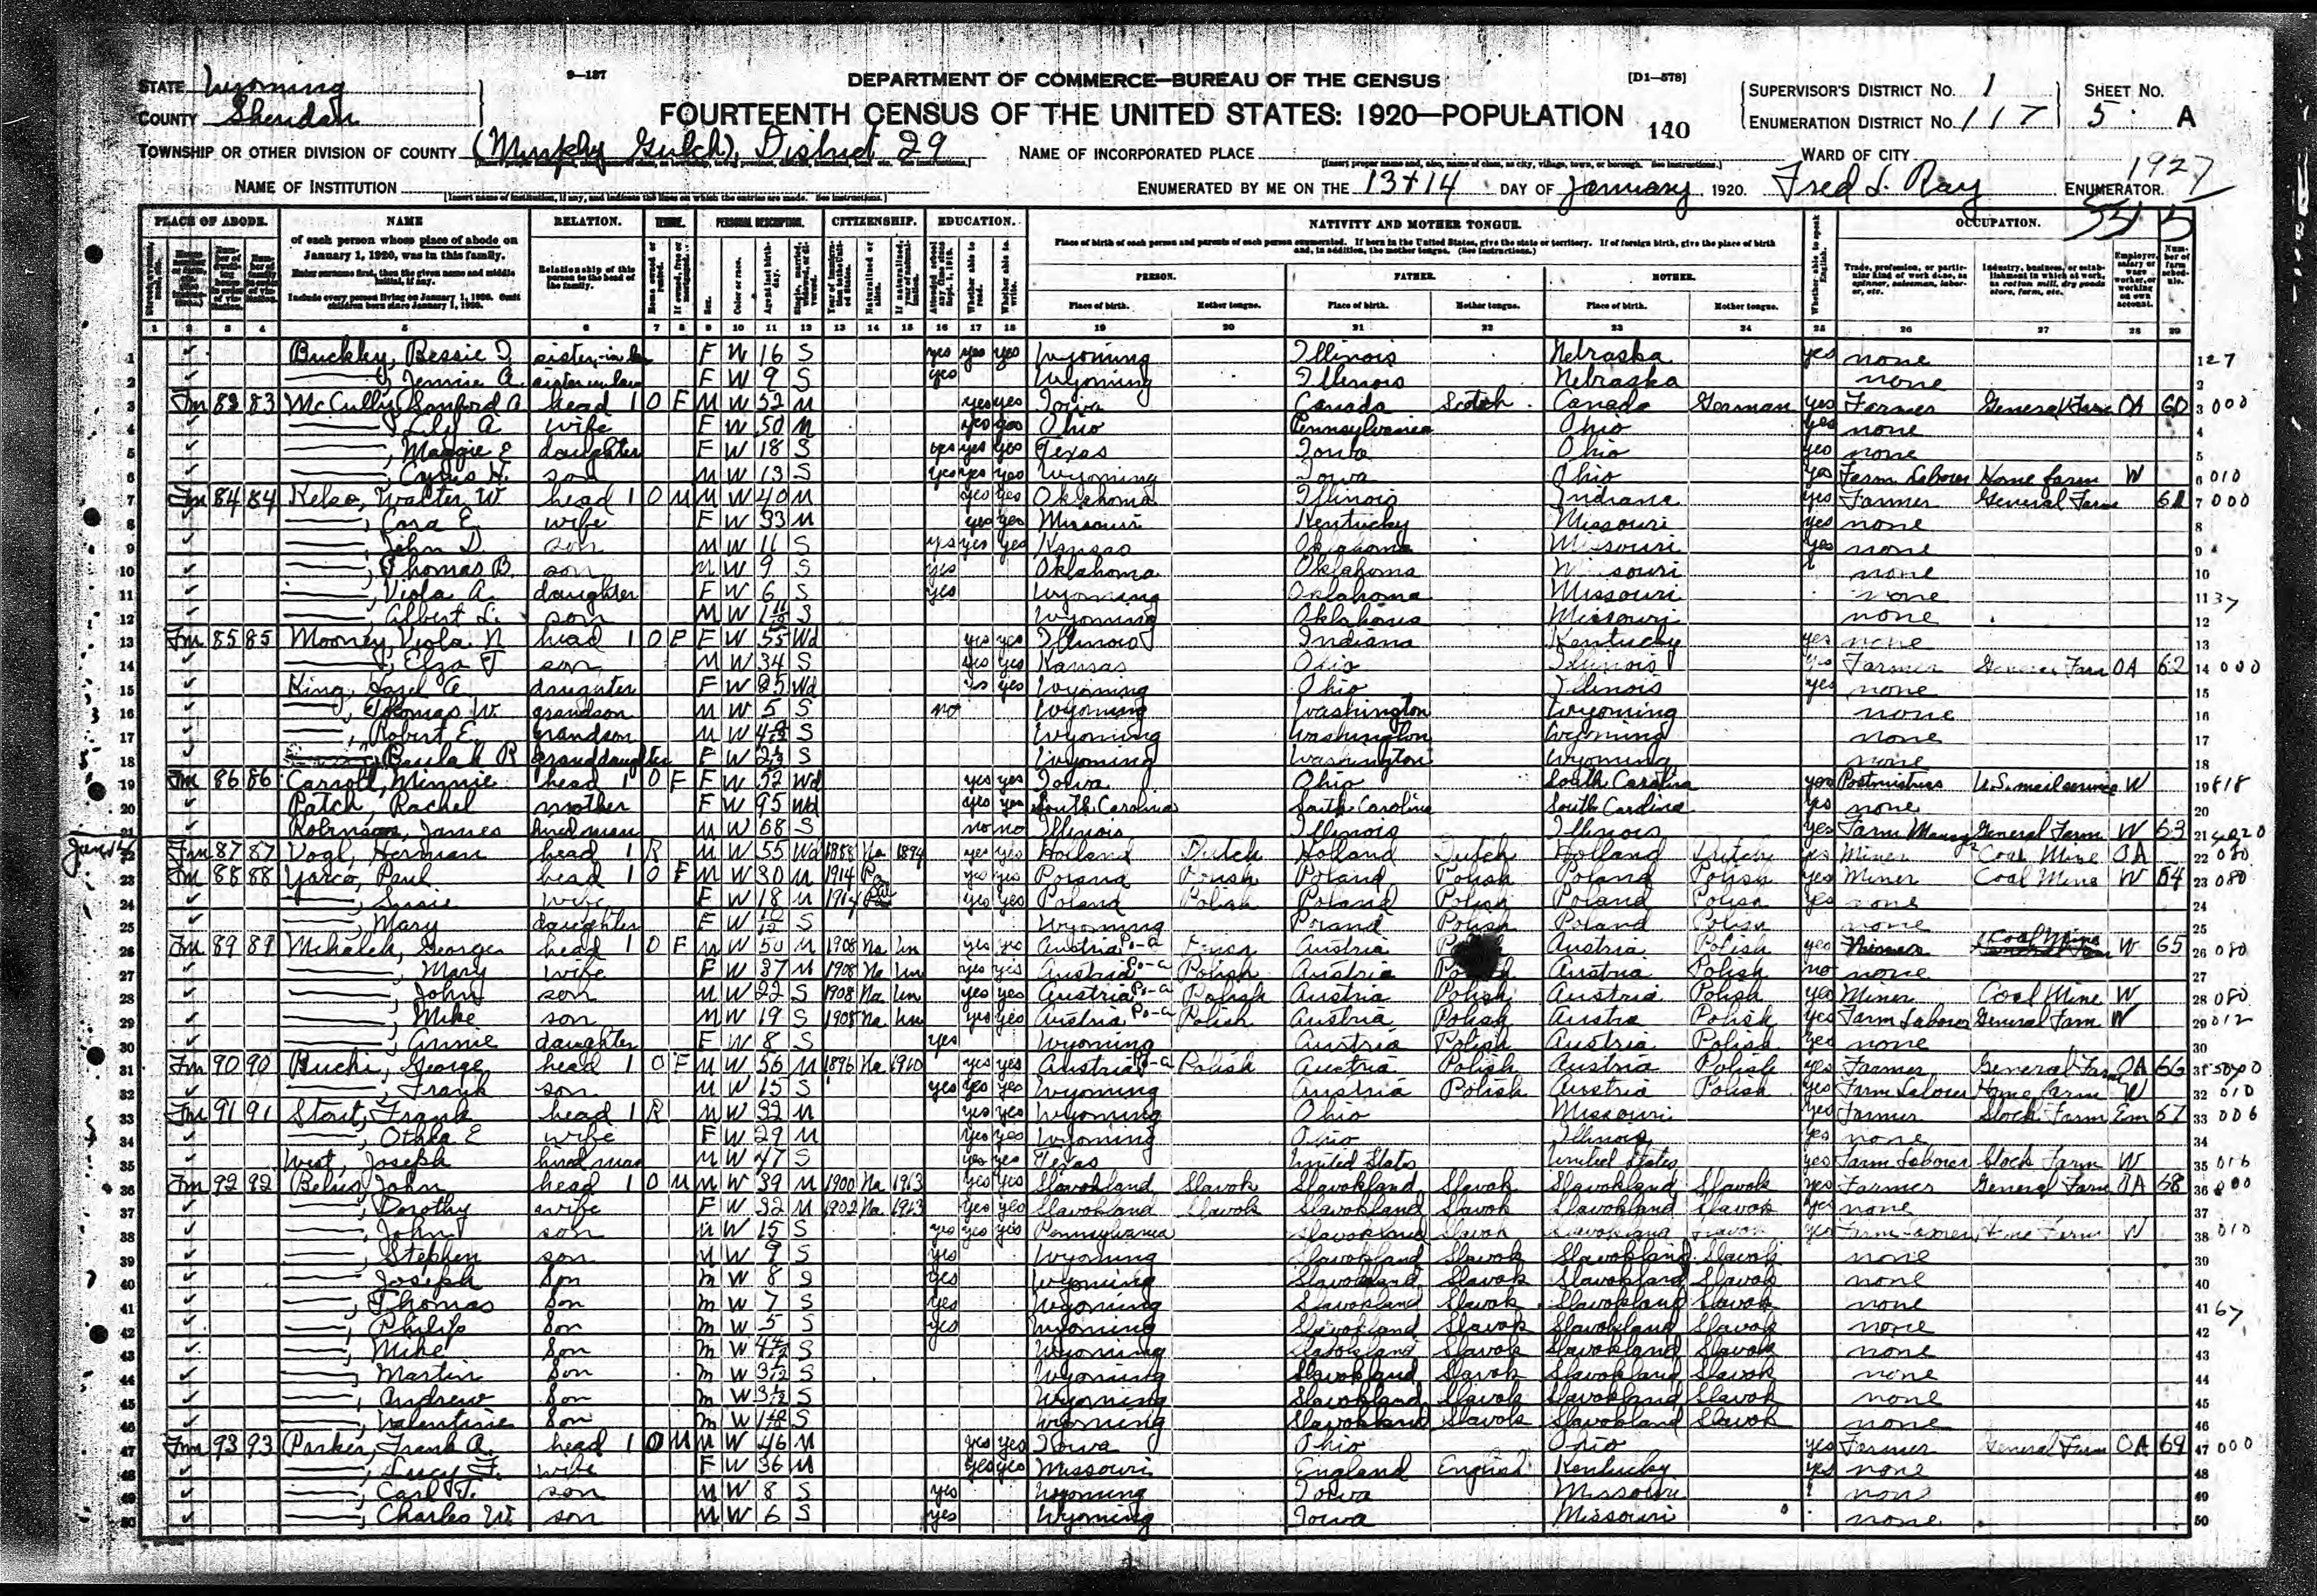 9—127
DEPARTMENT OF COMMERCE—BUREAU OF THE CENSUS
[D1—578]
STATE Wyoming
COUNTY Sheridan
FOURTEENTH CENSUS OF THE UNITED STATES: 1920—POPULATION
140
SUPERVISOR'S DISTRICT No. 1
ENUMERATION DISTRICT No. 117
SHEET No. 5 A
TOWNSHIP OR OTHER DIVISION OF COUNTY (Murphy Gulch), District 29
NAME OF INCORPORATED PLACE
WARD OF CITY
1927
NAME OF INSTITUTION
ENUMERATED BY ME ON THE 13+14 DAY OF January, 1920. Fred L. Ray ENUMERATOR.
PLACE OF ABODE. NAME RELATION. TENURE. PERSONAL DESCRIPTION. CITIZENSHIP. EDUCATION. NATIVITY AND MOTHER TONGUE. OCCUPATION.
of each person whose place of abode on January 1, 1920, was in this family.
Relationship of this person to the head of the family.
Place of birth of each person and parents of each person enumerated. If born in the United States, give the state or territory. If of foreign birth, give the place of birth and, in addition, the mother tongue. (See Instructions.)
PERSON. FATHER. MOTHER.
Place of birth. Mother tongue. Place of birth. Mother tongue. Place of birth. Mother tongue.
1 2 3 4 5 6 7 8 9 10 11 12 13 14 15 16 17 18 19 20 21 22 23 24 25 26 27 28 29
1 Buckley, Bessie sister-in-law F W 16 S yes yes yes Wyoming Illinois Nebraska yes none 1 27
2 ——, Jennie A. sister in law F W 9 S yes Wyoming Illinois Nebraska none 2
3 Fm 83 83 McCully, Sanford A head 1 O F M W 52 M yes yes Iowa Canada Scotch Canada German yes Farmer General Farm OA 60 3 000
4 ——, Lily A wife F W 50 M yes yes Ohio Pennsylvania Ohio yes none 4
5 ——, Maggie E daughter F W 18 S yes yes yes Texas Iowa Ohio yes none 5
6 ——, Cyrus H. son M W 13 S yes yes yes Wyoming Iowa Ohio yes Farm Laborer Home farm W 6 010
7 Fm 84 84 Kelso, Walter W head 1 O M M W 40 M yes yes Oklahoma Illinois Indiana yes Farmer General Farm 61 7 000
8 ——, Cora E. wife F W 33 M yes yes Missouri Kentucky Missouri yes none 8
9 ——, John D. son M W 11 S yes yes yes Kansas Oklahoma Missouri yes none 9
10 ——, Thomas B. son M W 9 S yes Oklahoma Oklahoma Missouri none 10
11 ——, Viola A. daughter F W 6 S yes Wyoming Oklahoma Missouri none 11 37
12 ——, Albert L. son M W S Wyoming Oklahoma Missouri none 12
13 Fm 85 85 Mooney, Viola N head 1 O F F W 55 Wd yes yes Illinois Indiana Kentucky yes none 13
14 ——, Elza J son M W 34 S yes yes Kansas Ohio Illinois yes Farmer General Farm OA 62 14 000
15 King, Hazel A. daughter F W 25 Wd yes yes Wyoming Ohio Illinois yes none 15
16 ——, Thomas W. grandson M W 5 S no Wyoming Washington Wyoming none 16
17 ——, Robert E. grandson M W S Wyoming Washington Wyoming none 17
18 ——, Beulah R granddaughter F W S Wyoming Washington Wyoming none 18
19 Fm 86 86 Carroll, Minnie head 1 O F F W 52 Wd yes yes Iowa Ohio South Carolina yes Postmistress U.S. mail service W 19 818
20 Patch, Rachel mother F W 95 Wd yes yes South Carolina South Carolina South Carolina yes none 20
21 Robinson, James hired man M W 68 S no no Illinois Illinois Illinois yes Farm Manager General Farm W 63 21
Jan 14
22 Fm 87 87 Vogl, Herman head 1 R M W 55 Wd 1888 Na 1894 yes yes Holland Dutch Holland Dutch Holland Dutch yes Miner Coal Mine OA 22 080
23 Fm 88 88 Yarco, Paul head 1 O F M W 30 M 1914 Pa yes yes Poland Polish Poland Polish Poland Polish yes Miner Coal Mine W 64 23 080
24 ——, Susie wife F W 18 M 1914 Pa yes yes Poland Polish Poland Polish Poland Polish yes none 24
25 ——, Mary daughter F W S Wyoming Poland Polish Poland Polish none 25
26 Fm 89 89 Mchalek, George head 1 O F M W 50 M 1908 Na Un yes yes Austria Po-a Polish Austria Austria Polish yes Miner Coal Mine W 65 26 080
27 ——, Mary wife F W 37 M 1908 Na Un yes yes Austria Po-a Polish Austria Polish Austria Polish no none 27
28 ——, John son M W 22 S 1908 Na Un yes yes Austria Po-a Polish Austria Polish Austria Polish yes Miner Coal Mine W 28 080
29 ——, Mike son M W 19 S 1908 Na Un yes yes Austria Po-a Polish Austria Polish Austria Polish yes Farm Laborer General Farm W 29 012
30 ——, Annie daughter F W 8 S yes Wyoming Austria Polish Austria Polish yes none 30
31 Fm 90 90 Ruchi, George head 1 O F M W 56 M 1896 Na 1910 yes yes Austria Po-a Polish Austria Polish Austria Polish yes Farmer General Farm OA 66 31
32 ——, Frank son M W 15 S yes yes yes Wyoming Austria Polish Austria Polish yes Farm Laborer Home farm W 32 010
33 Fm 91 91 Stout, Frank head 1 R M W 32 M yes yes Wyoming Ohio Missouri yes Farmer Stock Farm Em 67 33 006
34 ——, Othla E wife F W 29 M yes yes Wyoming Ohio Illinois yes none 34
35 West, Joseph hired man M W 47 S yes yes Texas United States United States yes Farm Laborer Stock Farm W 35 016
36 Fm 92 92 Belus, John head 1 O M M W 39 M 1900 Na 1913 yes yes Slavokland Slavok Slavokland Slavok Slavokland Slavok yes Farmer General Farm OA 68 36 000
37 ——, Dorothy wife F W 32 M 1902 Na 1913 yes yes Slavokland Slavok Slavokland Slavok Slavokland Slavok yes none 37
38 ——, John son M W 15 S yes yes yes Pennsylvania Slavokland Slavok Slavokland Slavok yes Farm Laborer Home Farm W 38 010
39 ——, Stephen son M W 9 S yes Wyoming Slavokland Slavok Slavokland Slavok none 39
40 ——, Joseph Son M W 8 S yes Wyoming Slavokland Slavok Slavokland Slavok none 40
41 ——, Thomas Son M W 7 S yes Wyoming Slavokland Slavok Slavokland Slavok none 41 67
42 ——, Philip Son M W 5 S yes Wyoming Slavokland Slavok Slavokland Slavok none 42
43 ——, Mike Son M W S Wyoming Slavokland Slavok Slavokland Slavok none 43
44 ——, Martin Son M W S Wyoming Slavokland Slavok Slavokland Slavok none 44
45 ——, Andrew Son M W S Wyoming Slavokland Slavok Slavokland Slavok none 45
46 ——, Valentine Son M W S Wyoming Slavokland Slavok Slavokland Slavok none 46
47 Fm 93 93 Parker, Frank A. head 1 O M M W 46 M yes yes Iowa Ohio Ohio yes Farmer General Farm OA 69 47 000
48 ——, Lucy F. wife F W 36 M yes yes Missouri England English Kentucky yes none 48
49 ——, Carl T. son M W 8 S yes Wyoming Iowa Missouri none 49
50 ——, Charles W. son M W 6 S yes Wyoming Iowa Missouri none 50